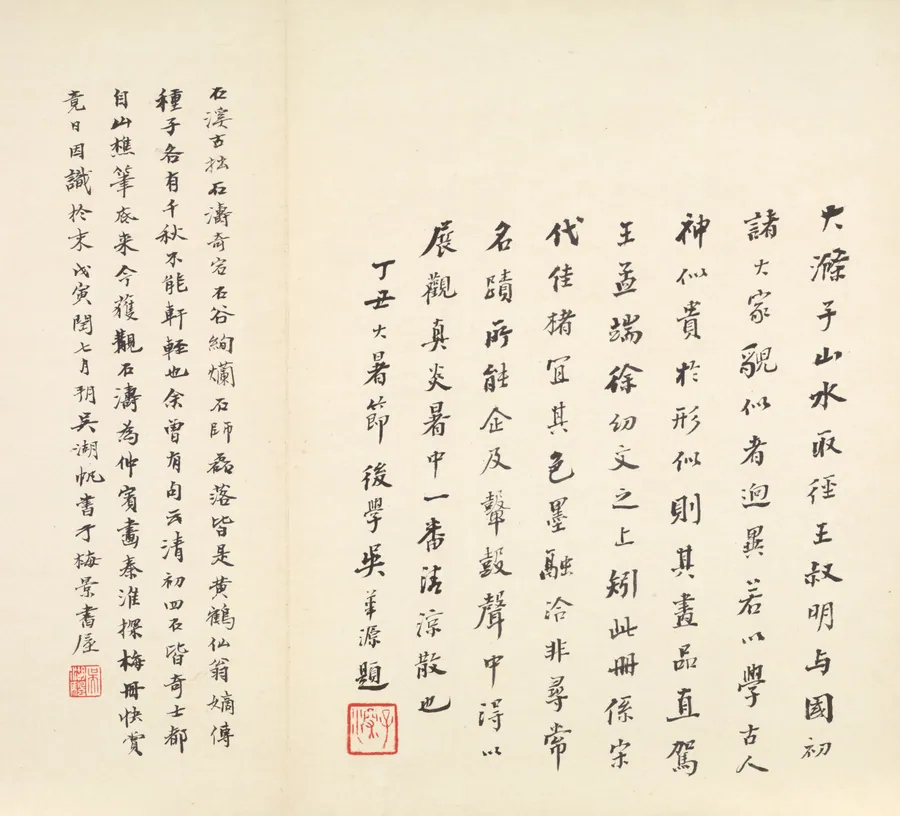 大滌子山水取徑王叔明与國初
諸大家貌似者迥異若以學古人
神似貴於形似則其畫品直駕
王孟端徐幼文之上矧此冊係宋
代佳楮宜其色墨融洽非尋常
名蹟所能企及鼙鼓聲中得以
展觀真炎暑中一番清涼散也
丁丑大暑節 後學吳華源題
石溪古拙石濤奇宕石谷絢爛石師磊落皆是黃鶴仙翁嫡傳
種子各有千秋不能軒輊也余曾有句云清初四石皆奇士都
自山樵筆底来今獲觀石濤為仲賓畫秦淮探梅冊快賞
竟日因識於末戊寅閏七月朔吳湖帆書于梅景書屋